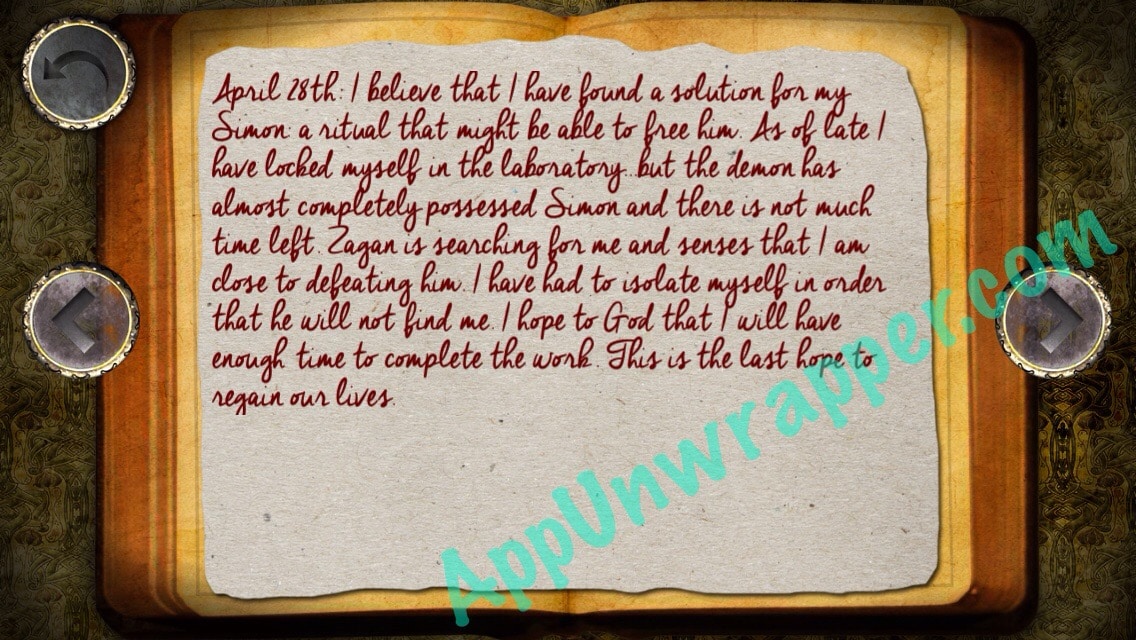 April 28th: I believe that I have found a solution for my
Simon: a ritual that might be able to free him. As of late I
have locked myself in the laboratory...but the demon has
almost completely possessed Simon and there is not much
time left. Zagan is searching for me and senses that I am
close to defeating him. I have had to isolate myself in order
that he will not find me. I hope to God that I will have
enough time to complete the work. This is the last hope to
regain our lives.
AppUnwrapper.com